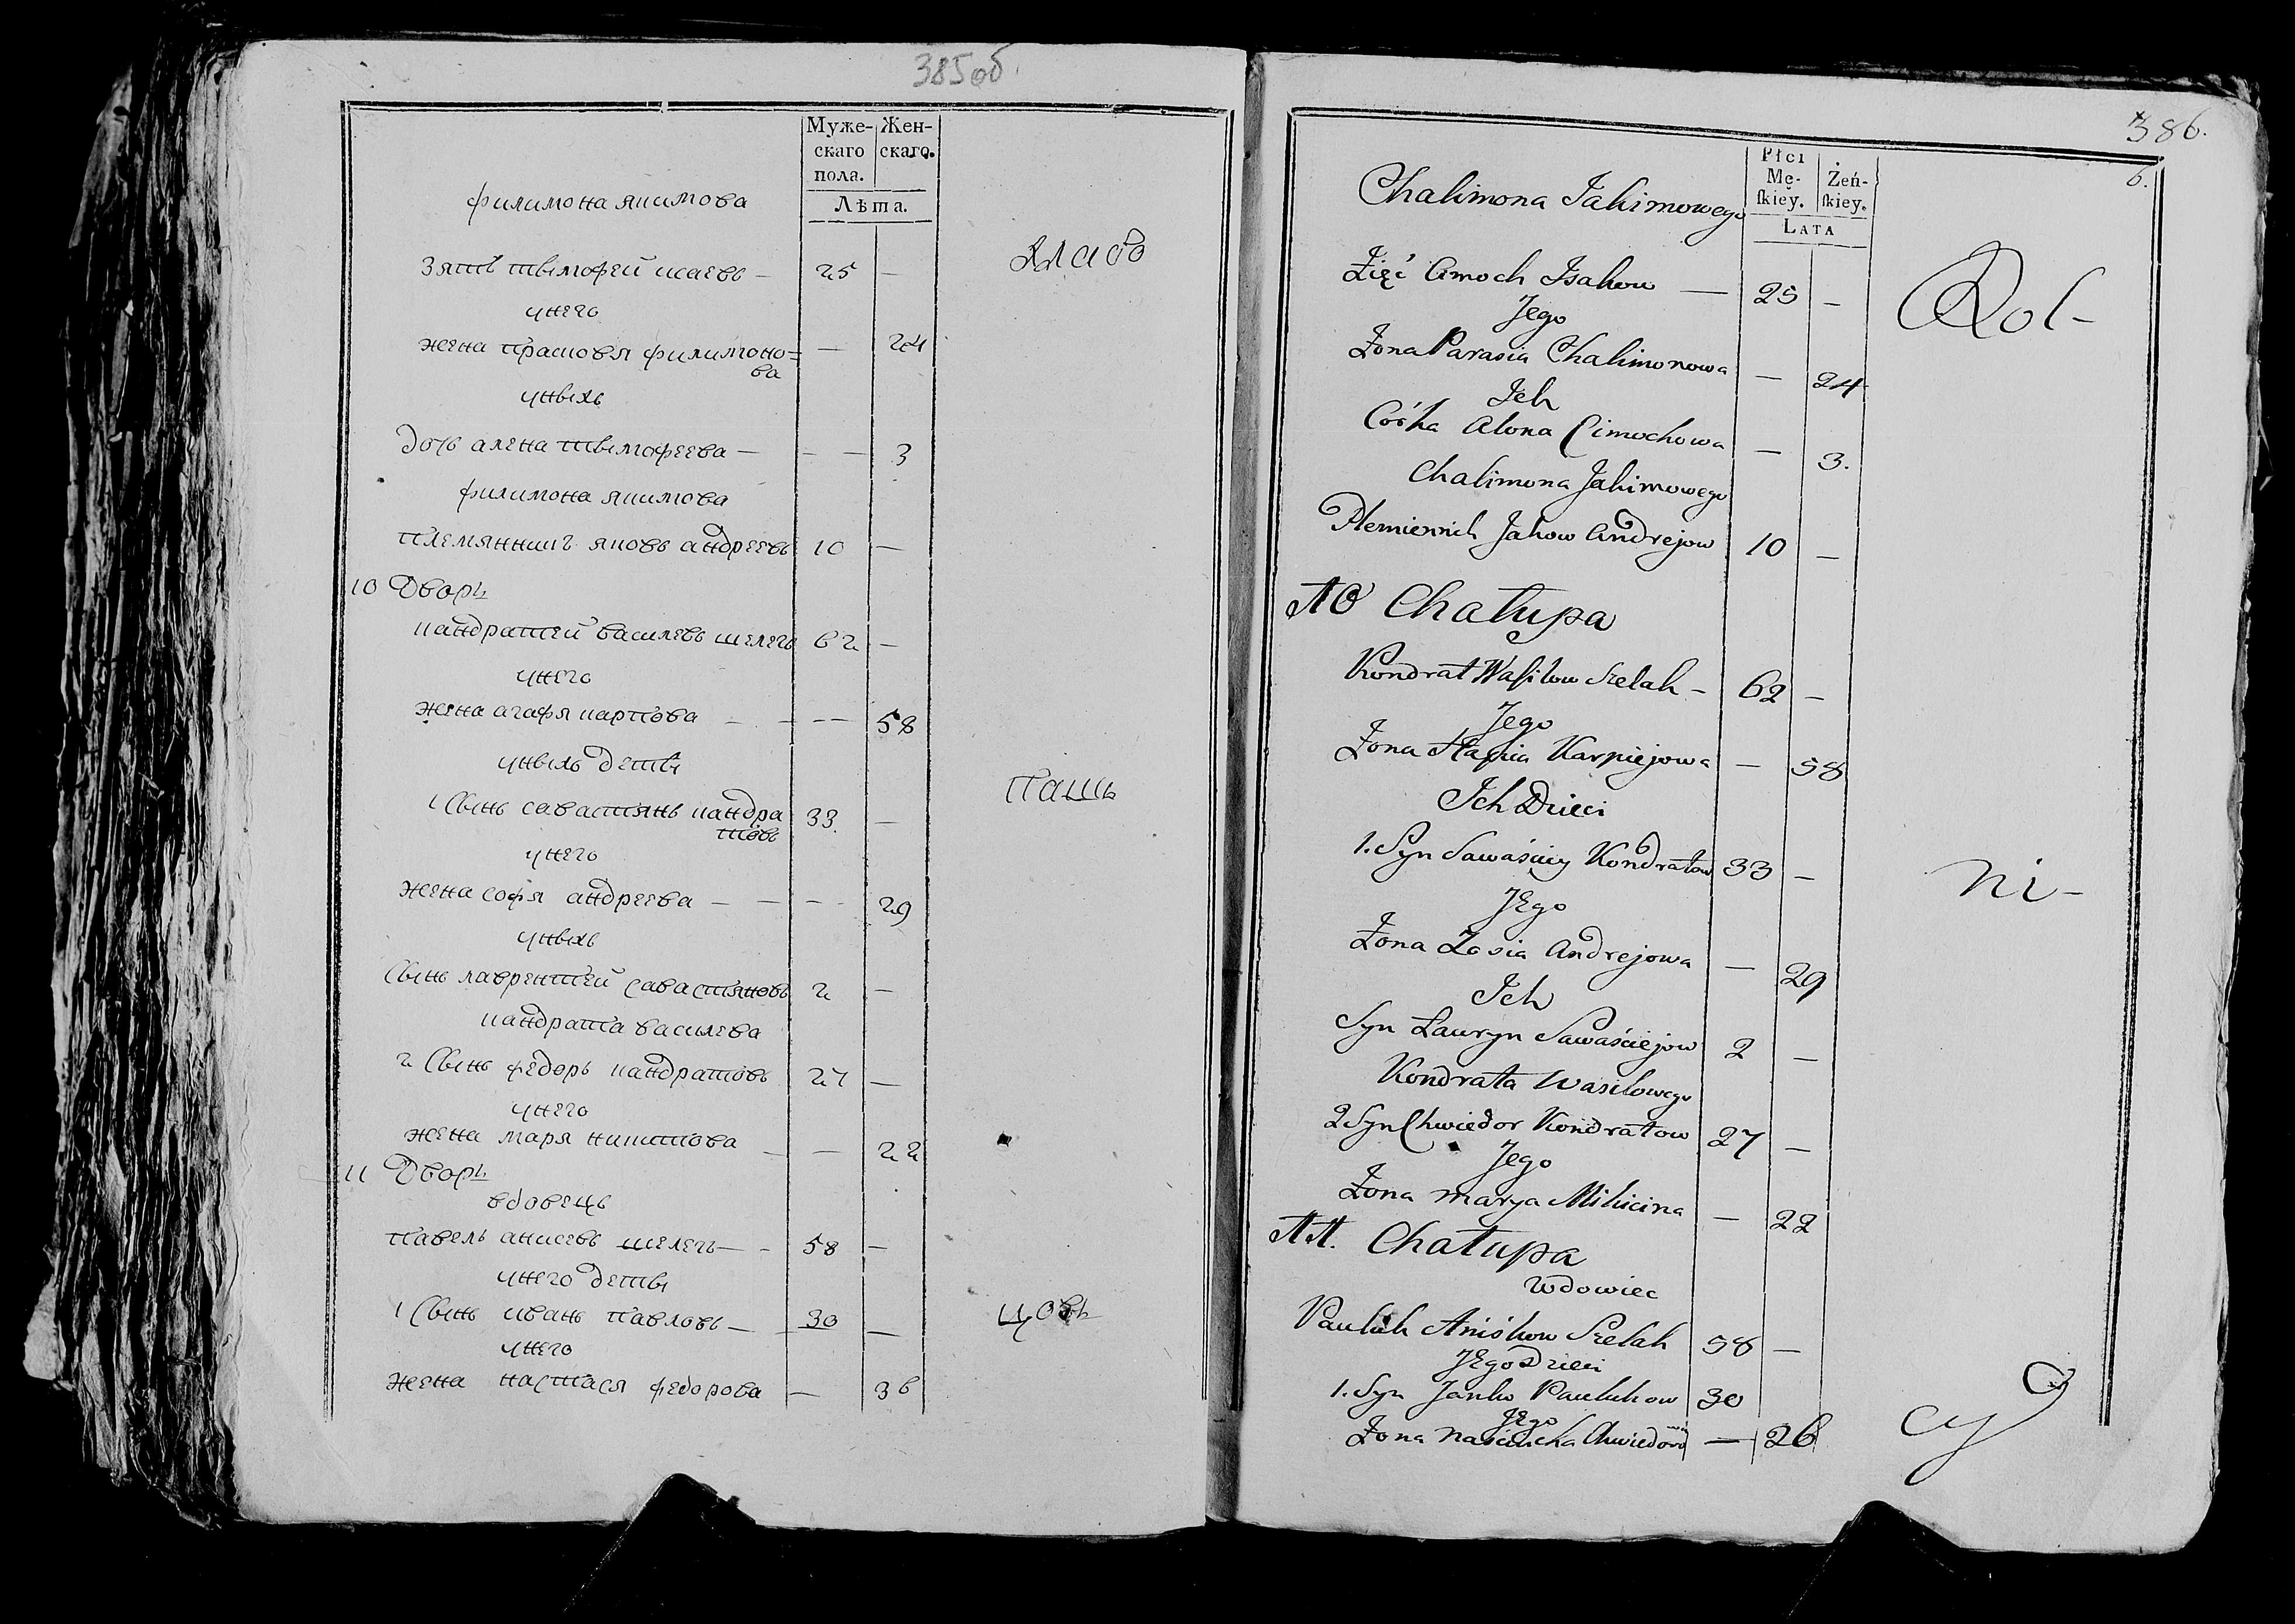 385об.
Муже- Жен-
скаго скаго.
пола.
Лѣта.
филимона якимова
Зять тымофеи исаевъ — 25 —
хлебо
унего
жена прасковя филимоно= — 24
ва
уныхъ
дочь алена тымофеева — — — 3
филимона якимова
племянникъ яковъ андреевъ 10 —
10 Дворъ
кандратеи василевъ шелегъ 62 —
унего
жена агафя карпова — — — — 58
уныхъ деты
1 Сынъ савастянъ кандра 33. —
товъ
пашъ
унего
жена софя андреева — — — — 29
уныхъ
Сынъ лаврентеи савастяновъ 2 —
кандрата василева
2 Сынъ федоръ кандратовъ 27 —
унего
жена маря никитова — — 22
11 Дворъ
вдовецъ
павелъ анисевъ шелегъ — — 58 —
унего деты
1 Сынъ иванъ павловъ — — 30 —
цовъ
унего
жена настася федорова — 36
386.
6.
Płci
Mę- Żeń-
skiey. skiey.
LATA
Chalimona Jakimowego
Zięć Cimoch Isakow — 25 —
Rol-
Jego
Żona Parasia Chalimonowa — 24
Ich
Córka Alona Cimochowa — 3.
Chalimona Jakimowego
Plemiennik Jakow Andrejow 10 —
10 Chałupa
Kondrat Wasilow Szelah — 62 —
Jego
Żona Hapia Karpiejowa — 58
Ich Dzieci
1. Syn Sawaściey Kondratow 33 —
ni-
Jego
Żona Zosia Andrejowa — 29
Ich
Syn Lauryn Sawaściejow 2 —
Kondrata Wasilowego
2 Syn Chwiedor Kondratow 27 —
Jego
Żona Marya Mikicina — 22
11. Chałupa
Wdowiec
Pauluk Aniśkow Szelah 58 —
Jego Dzieci
1. Syn Janko Paulukow 30
cy
Jego
Żona Naściucha Chwiedorowa — 26